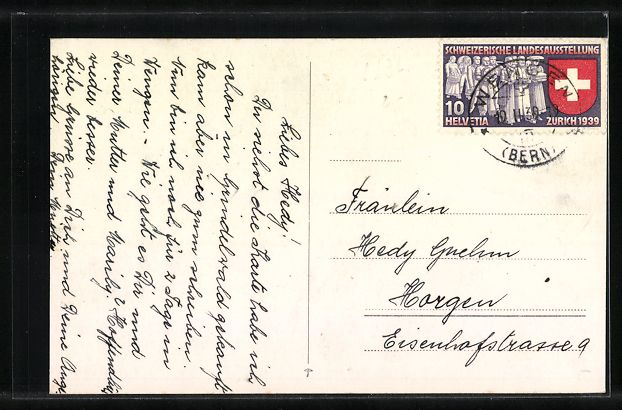 Liebes Hedy!
Du siehst die Karte habe ich
schon in Grindelwald gekauft
kam aber nie zum schreiben.
Nun bin ich noch für 2 Tage in
Wengen. - Wie geht es Dir und
Deiner Mutter und Hanly? Hoffendlich
wieder besser.
Liebe Grüsse an Dich und Deine Ange
SCHWEIZERISCHE LANDESAUSSTELLUNG
10
HELVETIA ZURICH 1939
WENGEN
(BERN)
Fräulein
Hedy
Horgen
Eisenhofstrasse 9